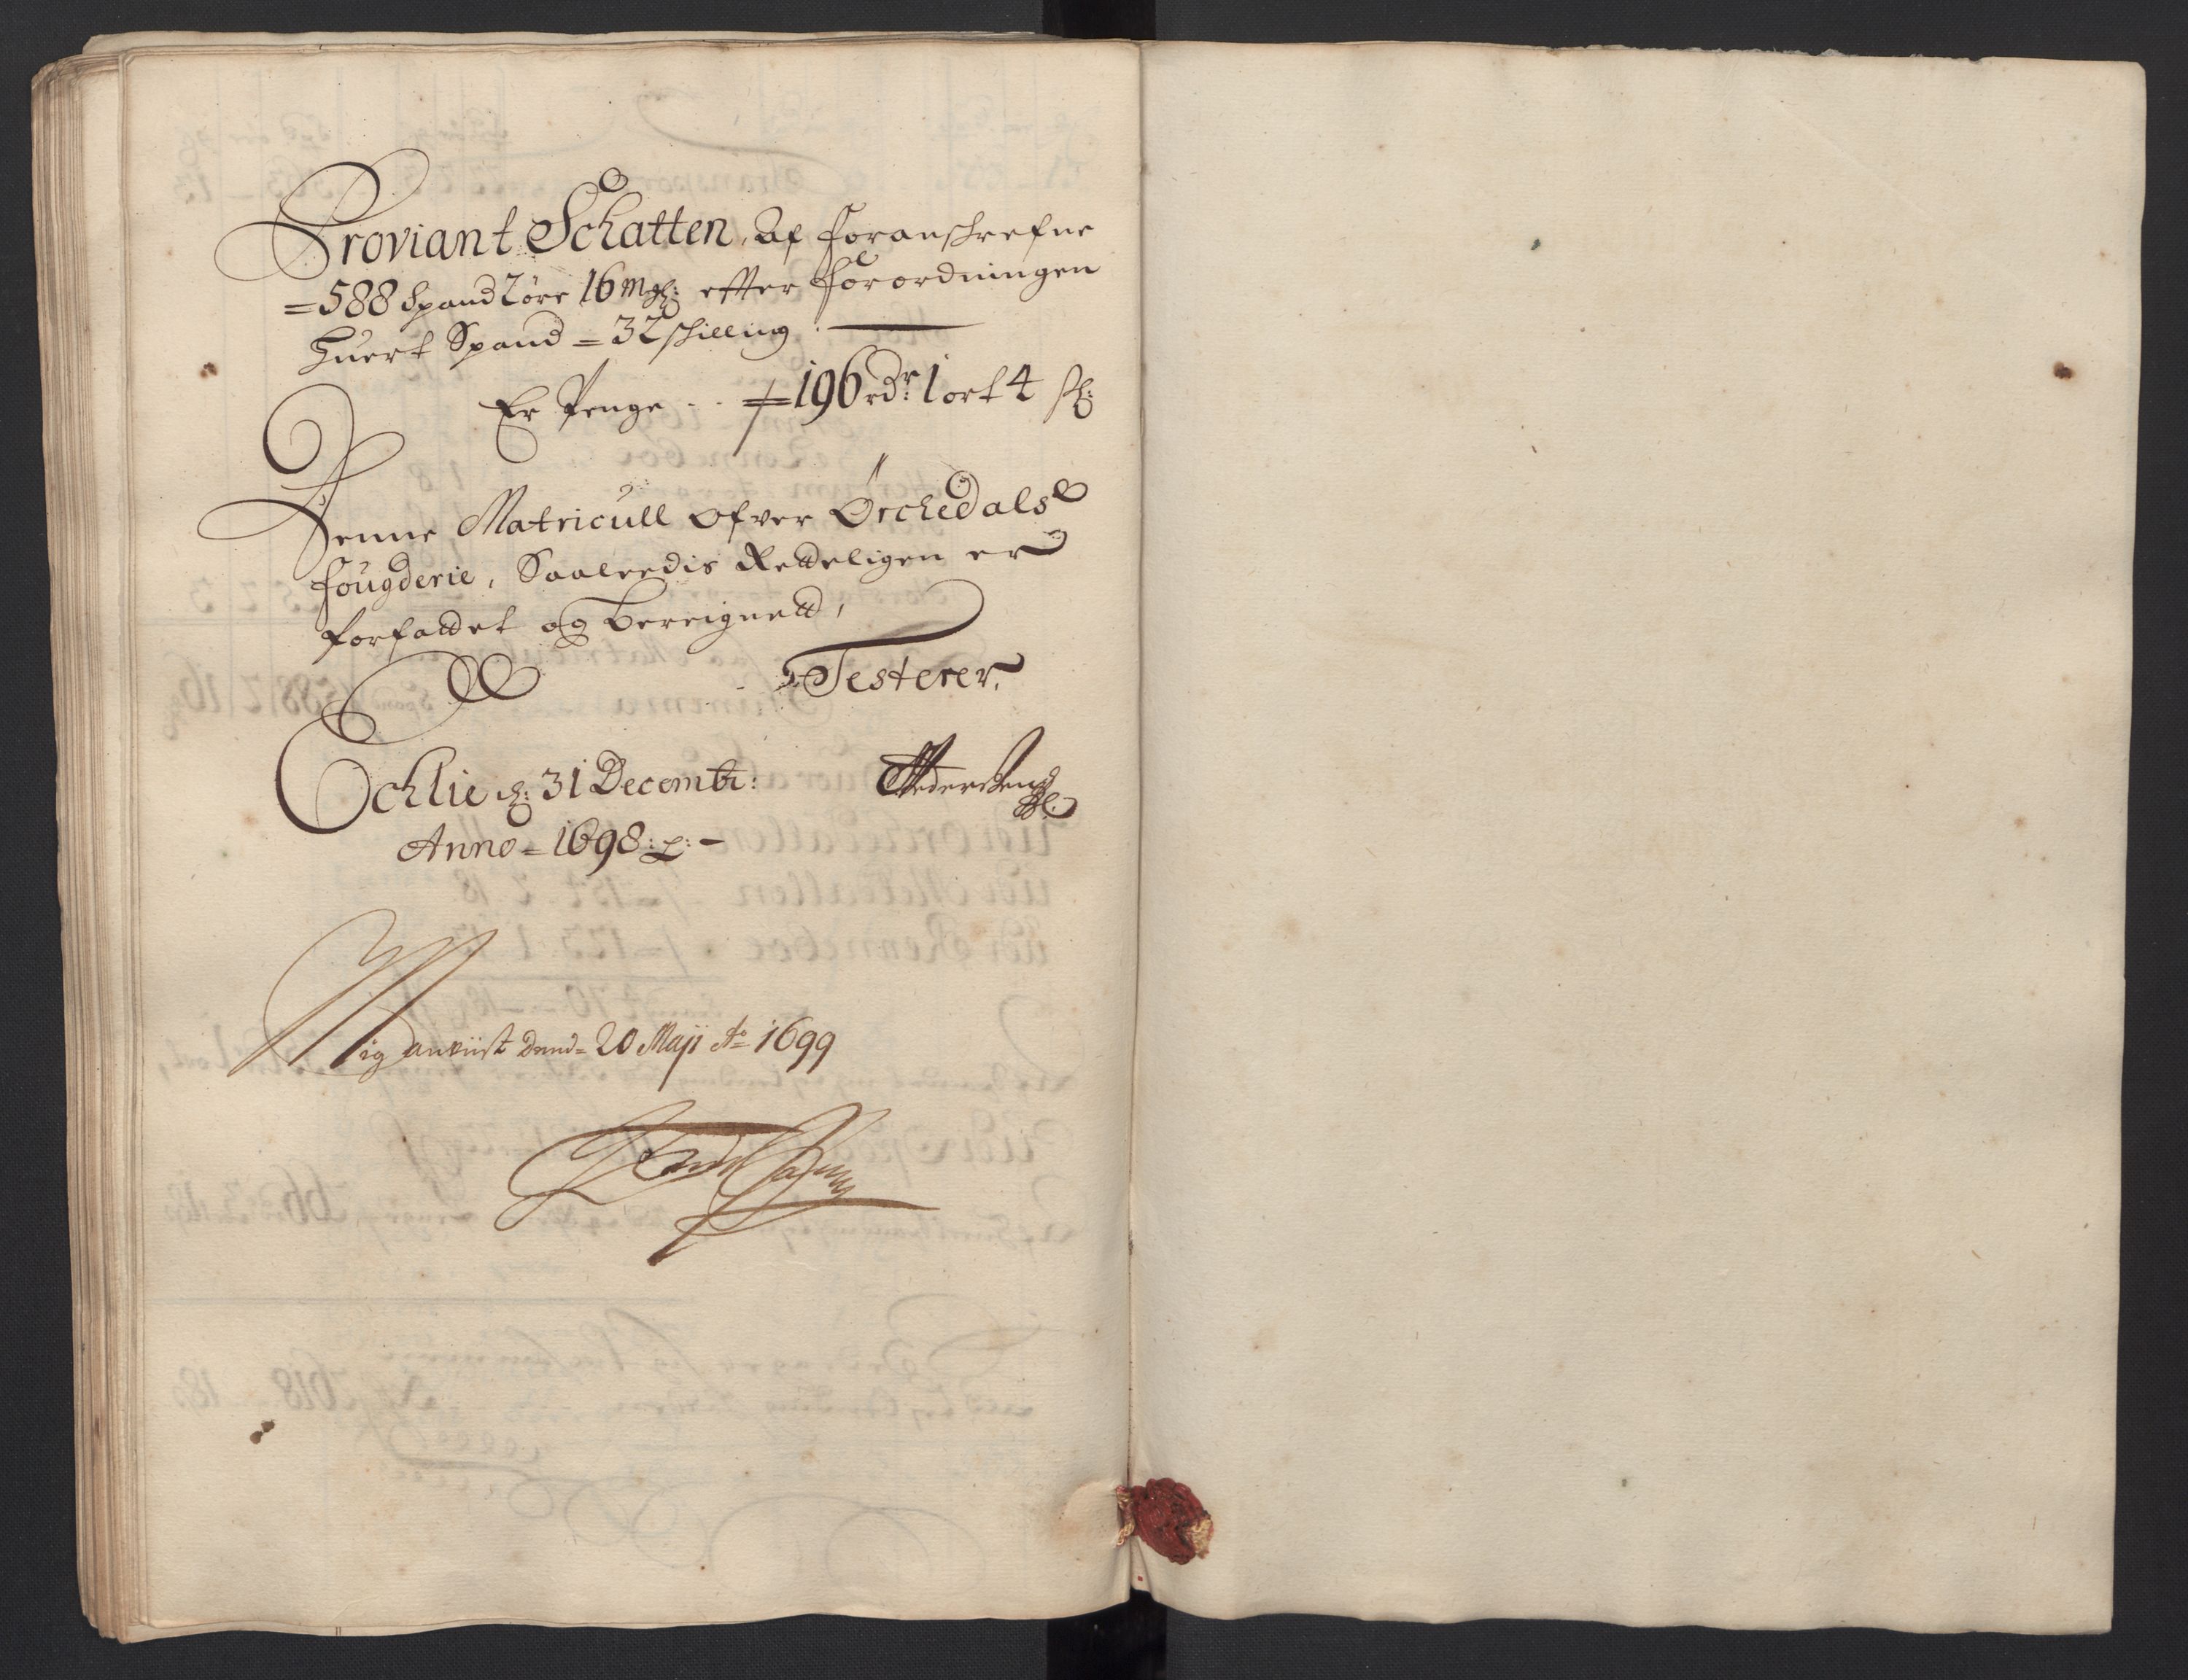 Proviant Schatten, Af foranschrefne
=588 Spand 2 öre 16 mgl: efter forordningen
Huert Spand = 32 schilling.
Er Penge - - =196 rdr: 1 ort 4 sh:
Denne Matricull ofver Ørchedals
fougderie, Saaleedis Retteligen er
forfattet og bereignett,
Testerer.
Ochlie d: 31 Decembr:
Anno = 1698:
Mig anviist dend= 20 Maji Ao 1699